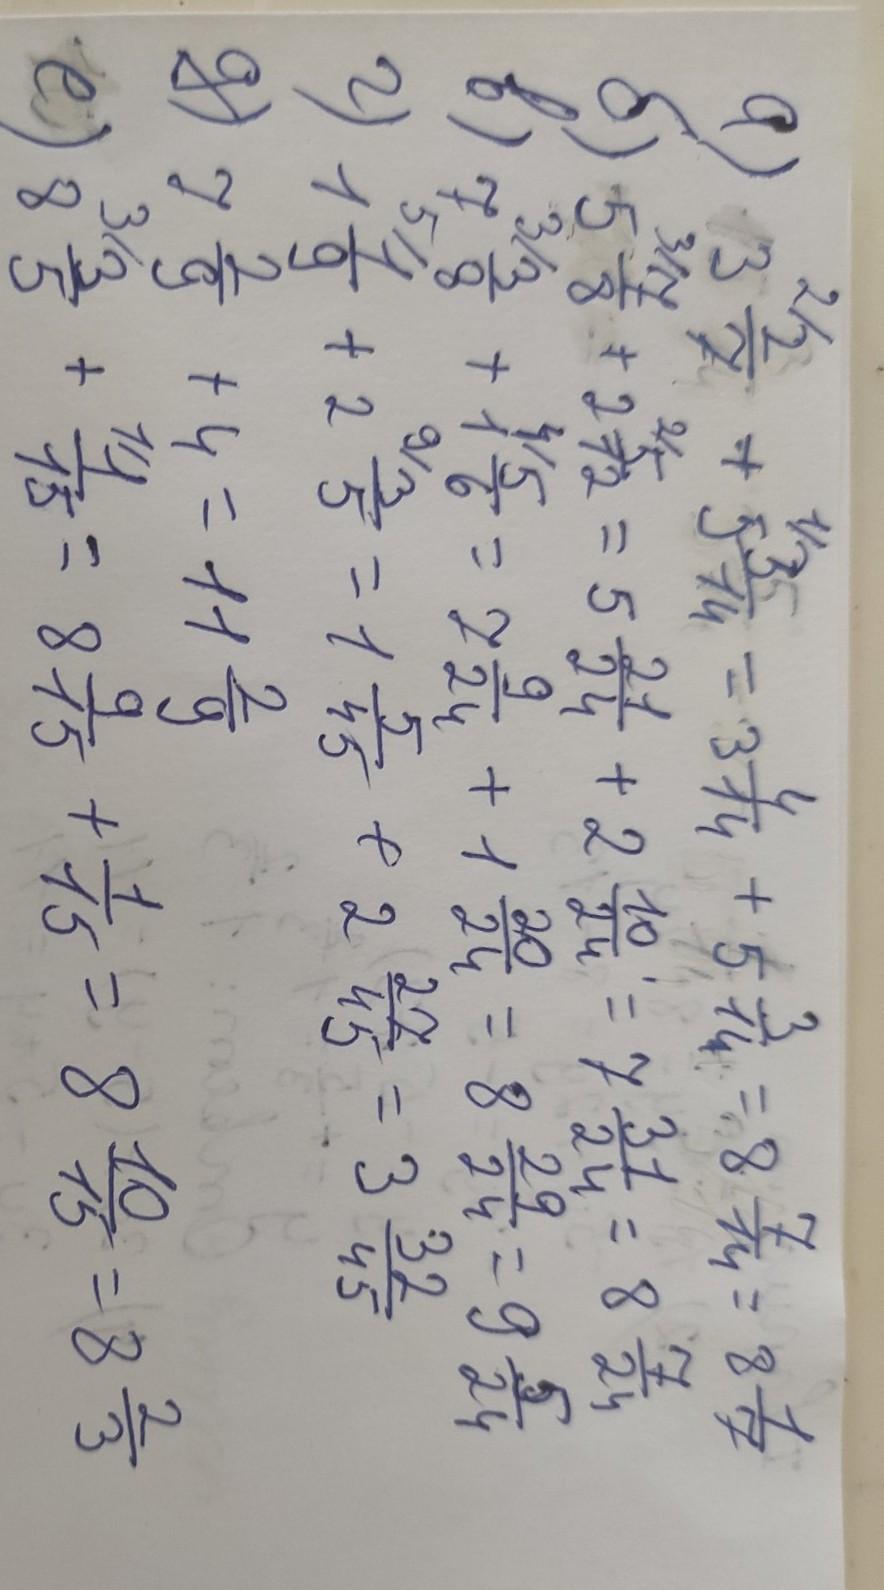 а) 3 2/2/7 + 5 1/3/14 = 3 4/14 + 5 3/14 = 8 7/14 = 8 1/7
б) 5 3/7/8 + 2 2/5/12 = 5 21/24 + 2 10/24 = 7 31/24 = 8 7/24
в) 7 3/3/8 + 1 4/5/6 = 7 9/24 + 1 20/24 = 8 29/24 = 9 5/24
г) 1 5/1/9 + 2 9/3/5 = 1 5/45 + 2 27/45 = 3 32/45
д) 7 2/9 + 4 = 11 2/9
е) 8 3/3/5 + 1/1/15 = 8 9/15 + 1/15 = 8 10/15 = 8 2/3